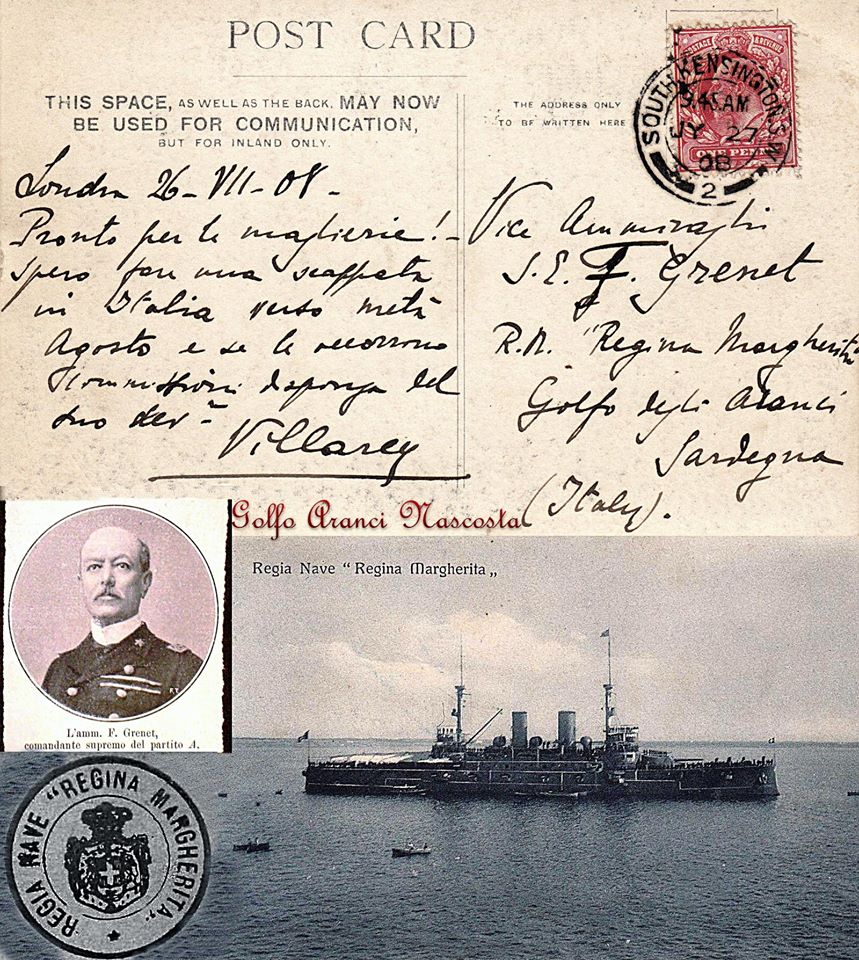 POST CARD
THIS SPACE, AS WELL AS THE BACK, MAY NOW
BE USED FOR COMMUNICATION,
BUT FOR INLAND ONLY.
THE ADDRESS ONLY
TO BE WRITTEN HERE
POSTAGE & REVENUE
ONE PENNY
SOUTH KENSINGTON S.W.
9.45 AM
JY 27
08
2
Londra 26-VII-08-
Pronto per le maglierie!-
Spero fare una scappata
in Italia verso metà
Agosto e se le occorrono
Commissioni disponga del
suo dev-
Villarey
Vice Ammiraglio
S.E. F. Grenet
R.N. "Regina Margherita
Golfo degli Aranci
Sardegna
(Italy).
Golfo Aranci Nascosta
Regia Nave "Regina Margherita„
L'amm. F. Grenet,
comandante supremo del partito A.
REGIA NAVE "REGINA MARGHERITA„